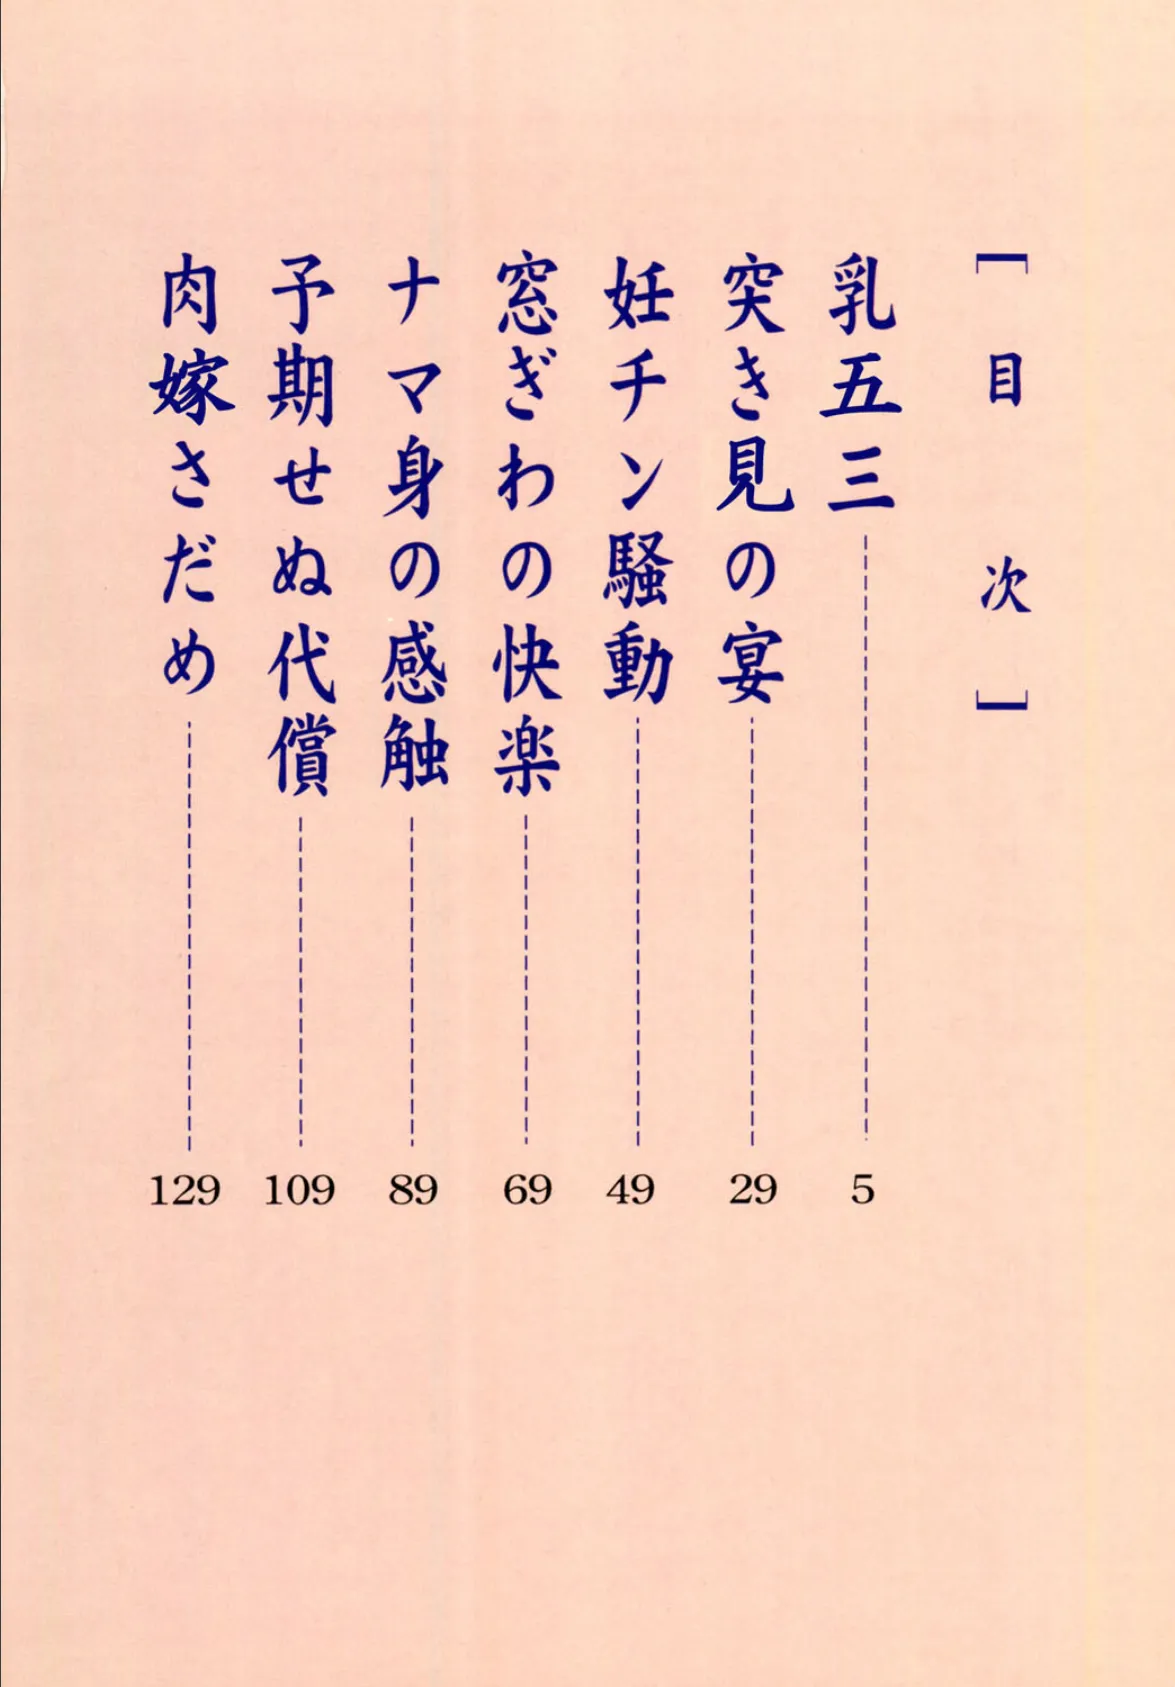 ［目次］
乳五三 5
突き見の宴 29
妊チン騒動 49
窓ぎわの快楽 69
ナマ身の感触 89
予期せぬ代償 109
肉嫁さだめ 129